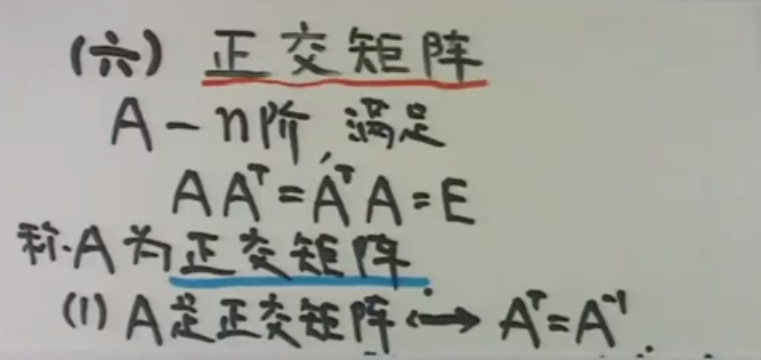 (六) 正交矩阵
A — n阶, 满足
AAᵀ = AᵀA = E
称A为正交矩阵
(1) A是正交矩阵 ⟷ Aᵀ = A⁻¹